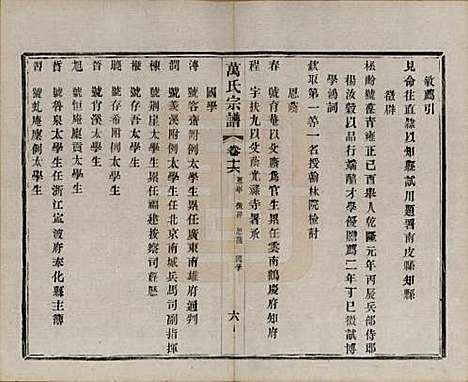 敏薦引
見命往直隸以知縣試用題署南皮縣知縣
徵辟
松齡 號葆青雍正己酉舉人乾隆元年丙辰兵部侍郎
楊汝穀以品行端醇才學優贍薦二年丁巳徵試博
學鴻詞
欽取第一等一名授翰林院檢討
恩蔭
春 號育菴以父蔭爲官生累任雲南鶴慶府知府
程 字扶九以父蔭光祿寺署丞
萬氏宗譜
卷十六
薦舉 徵辟 恩蔭 國學
六
國學
溥 號容齋附例太學生累任廣東南雄府通判
潤 號羨溪附例太學生任北京南城兵馬司副指揮
號存吾太學生累任福建按察司經歷
號存希附例太學生
號肯溪太學生
號恒庵廩貢太學生
號養泉太學生任浙江寧波府奉化縣主簿
習 號虬庵廩例太學生